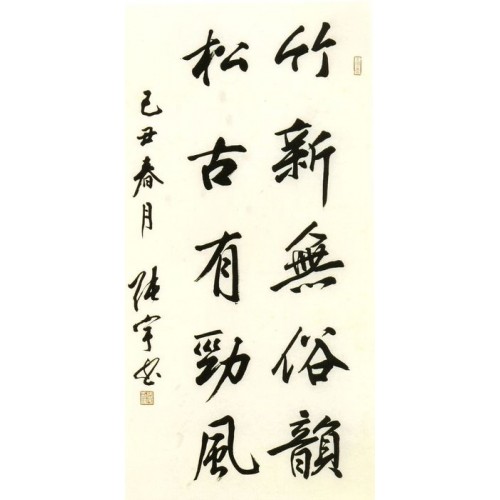 竹新無俗韻
松古有勁風
己丑春月 張宇书